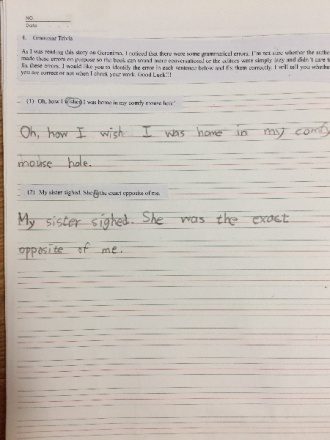 NO.
DATE
4. Grammar Trivia
As I was reading this story on Geronimo, I noticed that there were some grammatical errors. I'm not sure whether the
made these errors on purpose so the book can sound more conversational or the editors were simply lazy and didn't care
fix these errors. I would like you to identify the error in each sentence below and fix them correctly. I will tell you
you are correct or not when I check your work. Good Luck!!!
(1) Oh, how I wished I was home in my comfy mouse hole!
Oh, how I wish I was home in my comfy
mouse hole.
(2) My sister sighed. She the exact opposite of me.
My sister sighed. She was the exact
opposite of me.